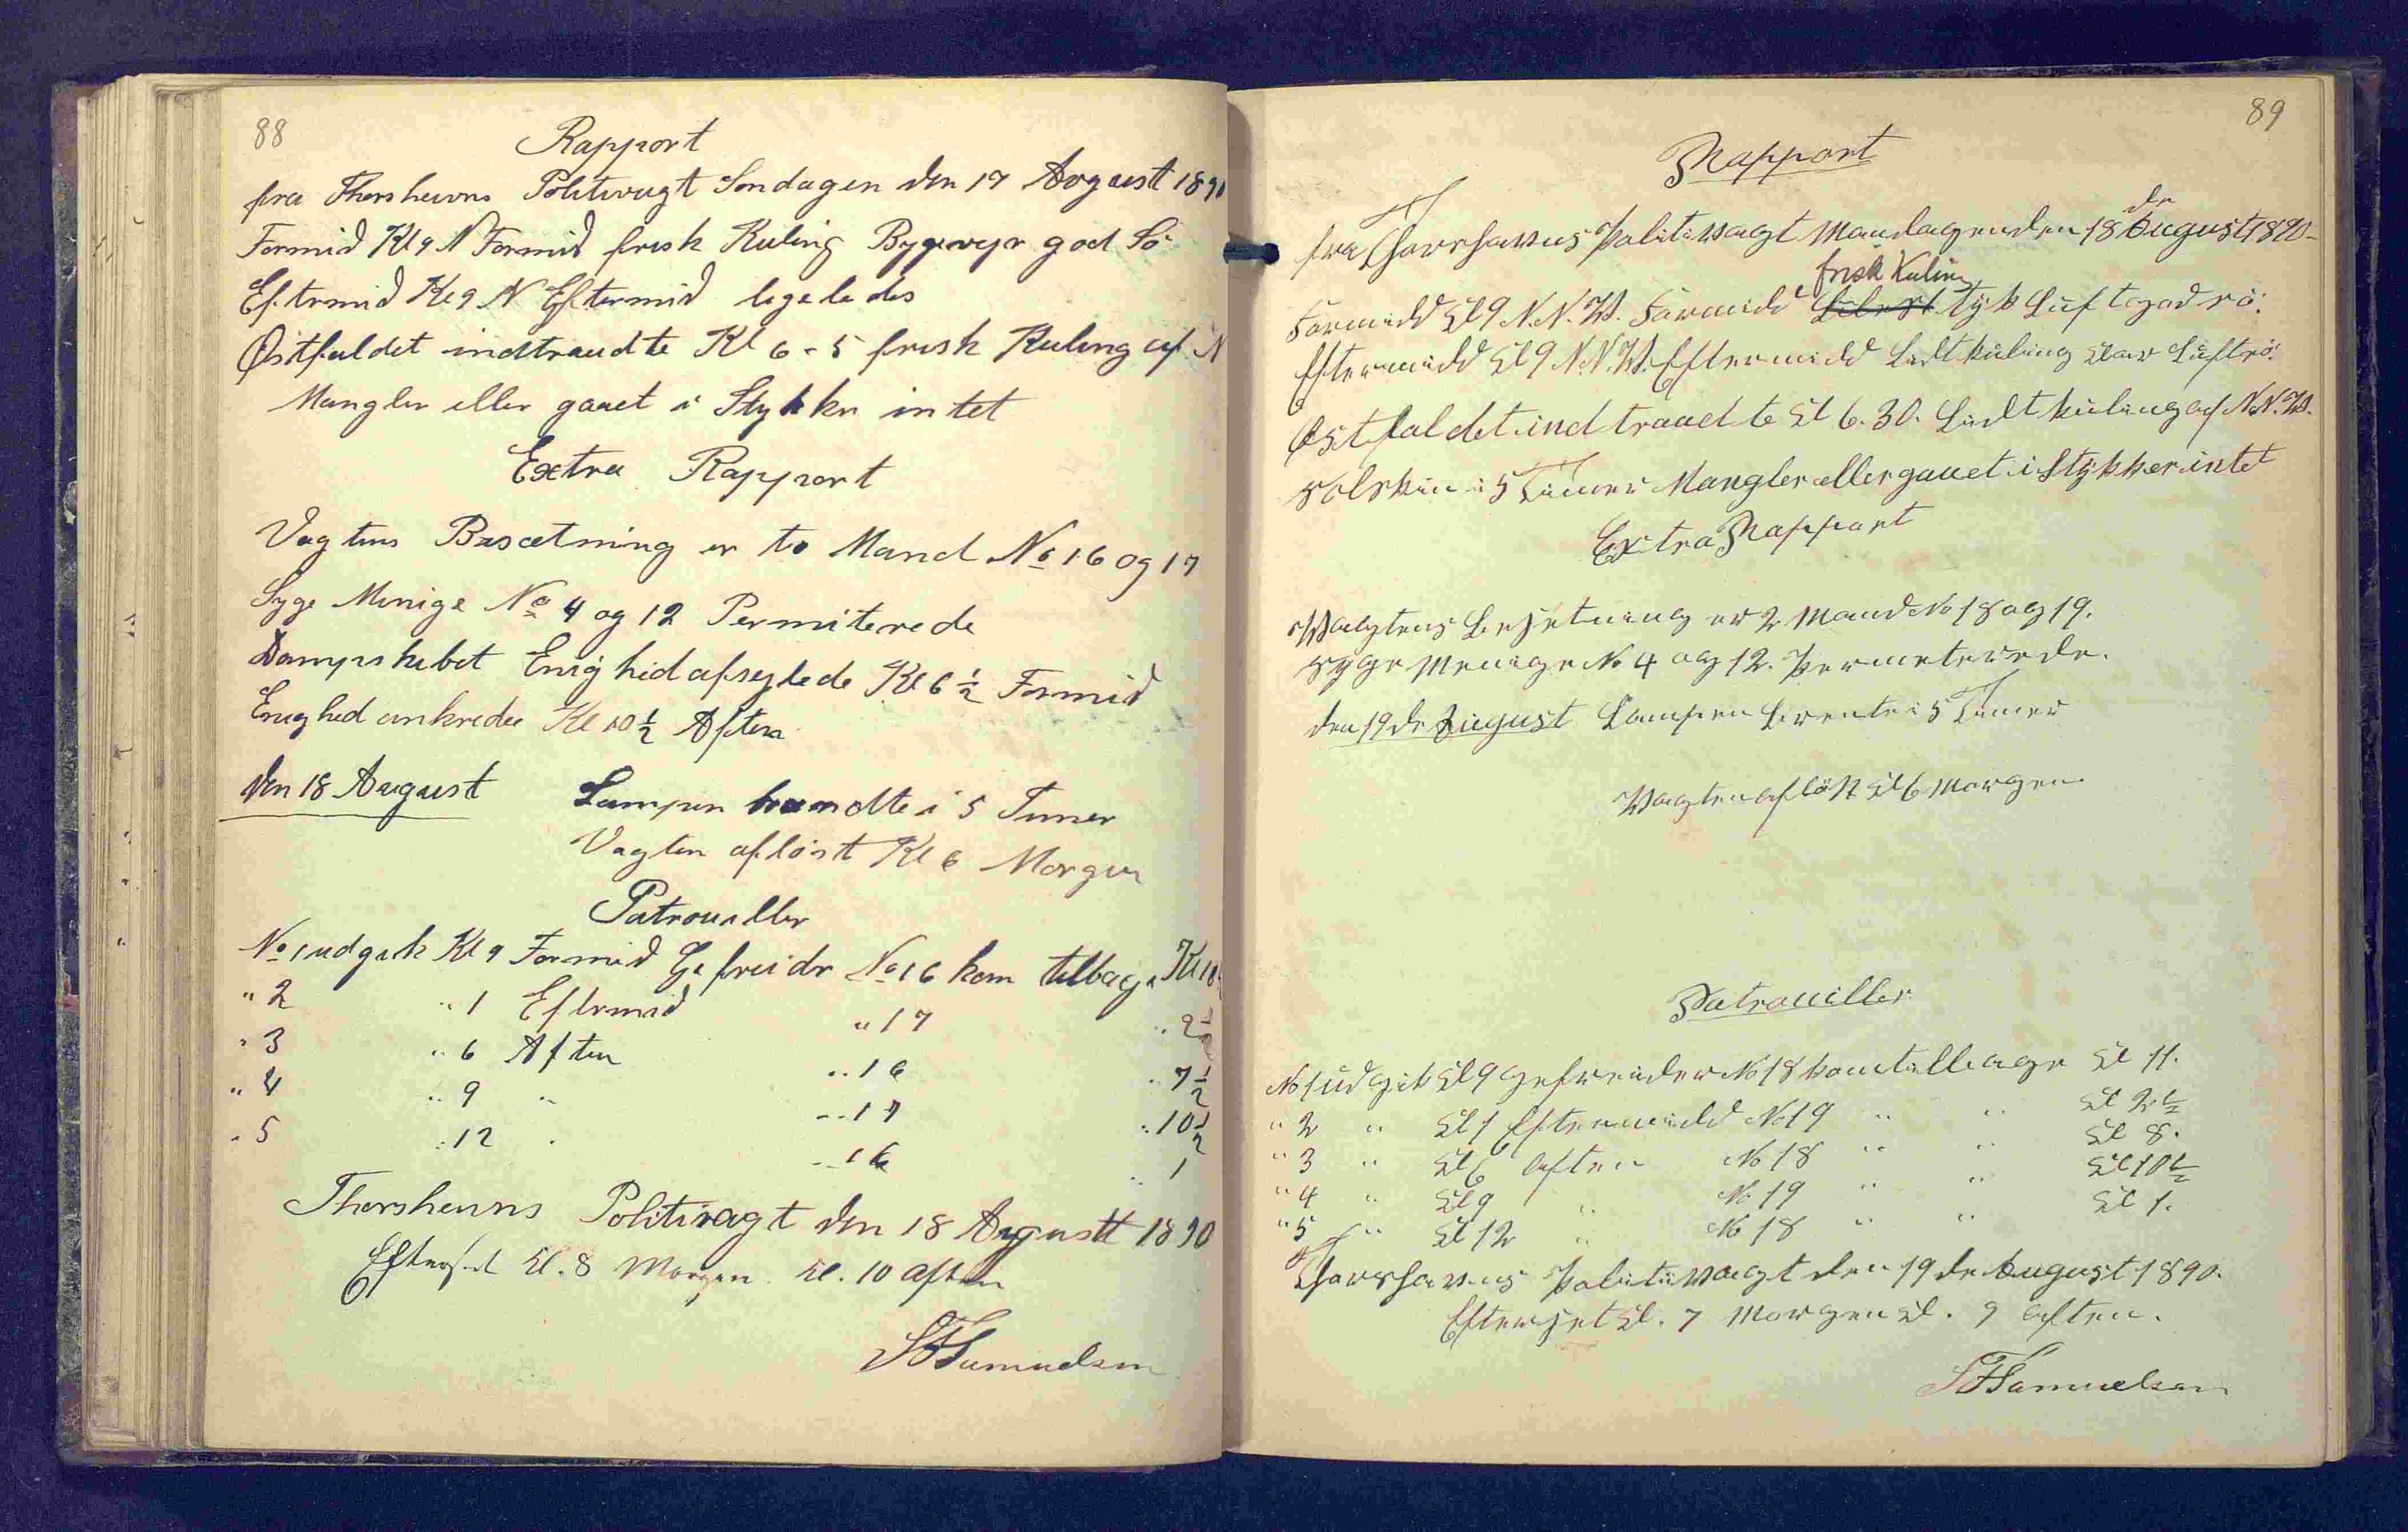 88
Rapport
fra Thorshavns Politivagt Søndagen den 17 August 1890
Formid Kl 9 N Formid frisk Kuling Bygevejr god Sö
Eftermid Kl 9 N Eftermid ligeledes
Østfaldet indtraadte Kl 6-5 frisk Kuling af N
Mangler eller gaaet i Stykker intet
Extra Rapport
Vagtens Besætning er to Mand No 16 og 17
Syge Menige No 4 og 12 Permiterede
Dampskibet Enighed afsejlede Kl 6 1/2 Formid
Enighed ankrede Kl 10 1/2 Aften
den 18 August Lampen brandte i 5 Timer
Vagten aflöst Kl 6 Morgen
Patrouiller
No 1 udgik Kl 9 Formid Gefreider No 16 kom tilbage Kl 10
" 2 " 1 Eftermid " 17 " 2 1/2
" 3 " 6 Aften " 16 " 7 1/2
" 4 " 9 " " 17 " 10 1/2
" 5 " 12 " " 16 " 1
Thorshavns Politivagt den 18 August 1890
Efterset Kl. 8 Morgen Kl. 10 Aften
Samuelsen
89
Rapport
fra Thorshavns Politivagt Mandagen den 18 de August 1890-
Formidd Kl 9 N.N.W. Formidd frisk Kuling tyk Luft god sö.
Eftermidd Kl 9 N.N.W. Eftermidd Lidt kuling klar Luft sö.
Østfaldet indtraadte Kl 6.30. Lidt kuling af N.N.W.
Solskin i 5 Timer Mangler eller gaaet i Stykker intet
Extra Rapport
Wagtens Besetning er 2 Mand No 18 og 19.
Syge Menige No 4 og 12. Permeterede.
den 19 de August Lampen brente i 5 Timer
Wagten aflöst Kl 6 Morgen
Patrouiller
No 1 udgik Kl 9 gefreider No 18 kom tilbage Kl 11.
" 2 " Kl 1 Eftermidd No 19 " " Kl 2 1/2
" 3 " Kl 6 Aften No 18 " " Kl 8.
" 4 " Kl 9 " No 19 " " Kl 10 1/2
" 5 " Kl 12 " No 18 " " Kl 1.
Thorshavns Politivagt den 19 de August 1890.
Efterset Kl. 7 Morgen Kl. 9 Aften.
Samuelsen